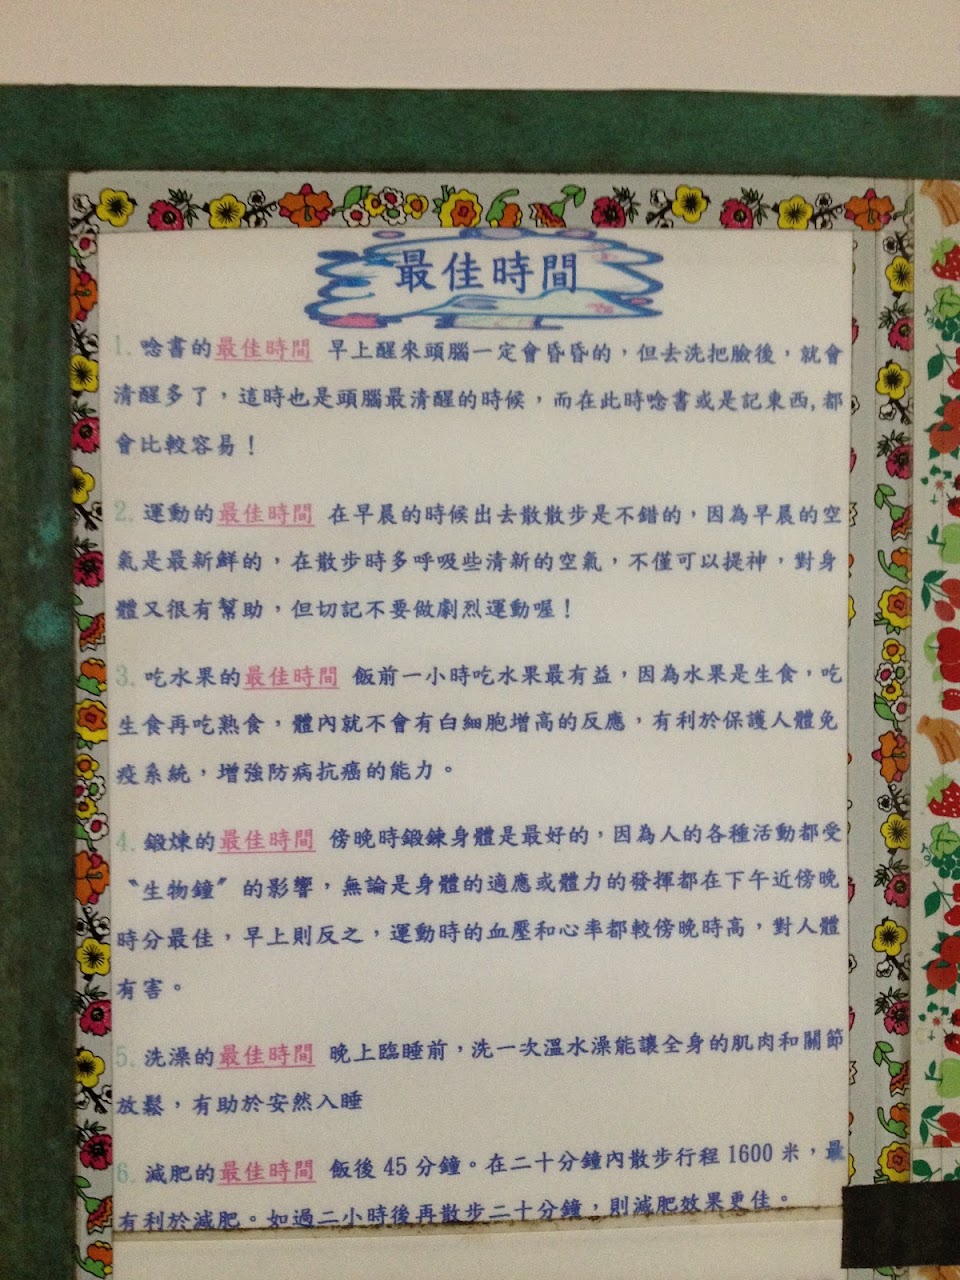 最佳時間
1. 唸書的最佳時間 早上醒來頭腦一定會昏昏的，但去洗把臉後，就會
清醒多了，這時也是頭腦最清醒的時候，而在此時唸書或是記東西,都
會比較容易！
2. 運動的最佳時間 在早晨的時候出去散散步是不錯的，因為早晨的空
氣是最新鮮的，在散步時多呼吸些清新的空氣，不僅可以提神，對身
體又很有幫助，但切記不要做劇烈運動喔！
3. 吃水果的最佳時間 飯前一小時吃水果最有益，因為水果是生食，吃
生食再吃熟食，體內就不會有白細胞增高的反應，有利於保護人體免
疫系統，增強防病抗癌的能力。
4. 鍛煉的最佳時間 傍晚時鍛鍊身體是最好的，因為人的各種活動都受
〝生物鐘〞的影響，無論是身體的適應或體力的發揮都在下午近傍晚
時分最佳，早上則反之，運動時的血壓和心率都較傍晚時高，對人體
有害。
5. 洗澡的最佳時間 晚上臨睡前，洗一次溫水澡能讓全身的肌肉和關節
放鬆，有助於安然入睡
6. 減肥的最佳時間 飯後 45 分鐘。在二十分鐘內散步行程 1600 米，最
有利於減肥。如過二小時後再散步二十分鐘，則減肥效果更佳。